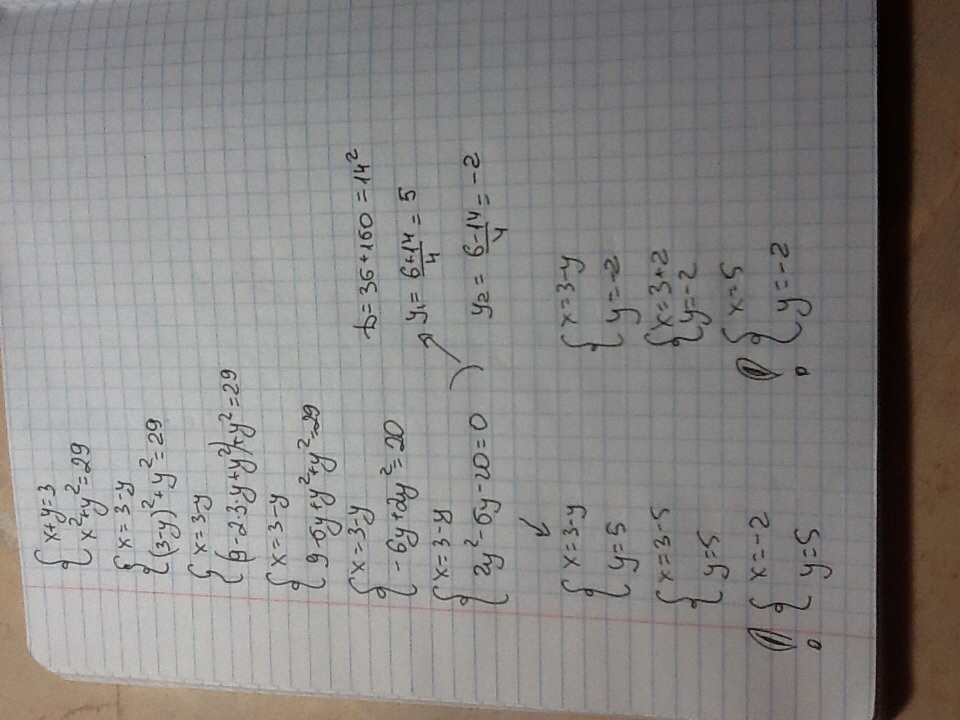 { x+y=3
{ x²+y²=29
{ x=3-y
{ (3-y)²+y²=29
{ x=3-y
{ (9-2·3·y+y²)+y²=29
{ x=3-y
{ 9-6y+y²+y²=29
{ x=3-y
{ -6y+2y²=20
{ x=3-y
{ 2y²-6y-20=0
D=36+160=14²
y₁=\frac{6+14}{4}=5
y₂=\frac{6-14}{4}=-2
{ x=3-y
{ y=5
{ x=3-5
{ y=5
{ x=-2
{ y=5
{ x=3-y
{ y=-2
{ x=3+2
{ y=-2
{ x=5
{ y=-2